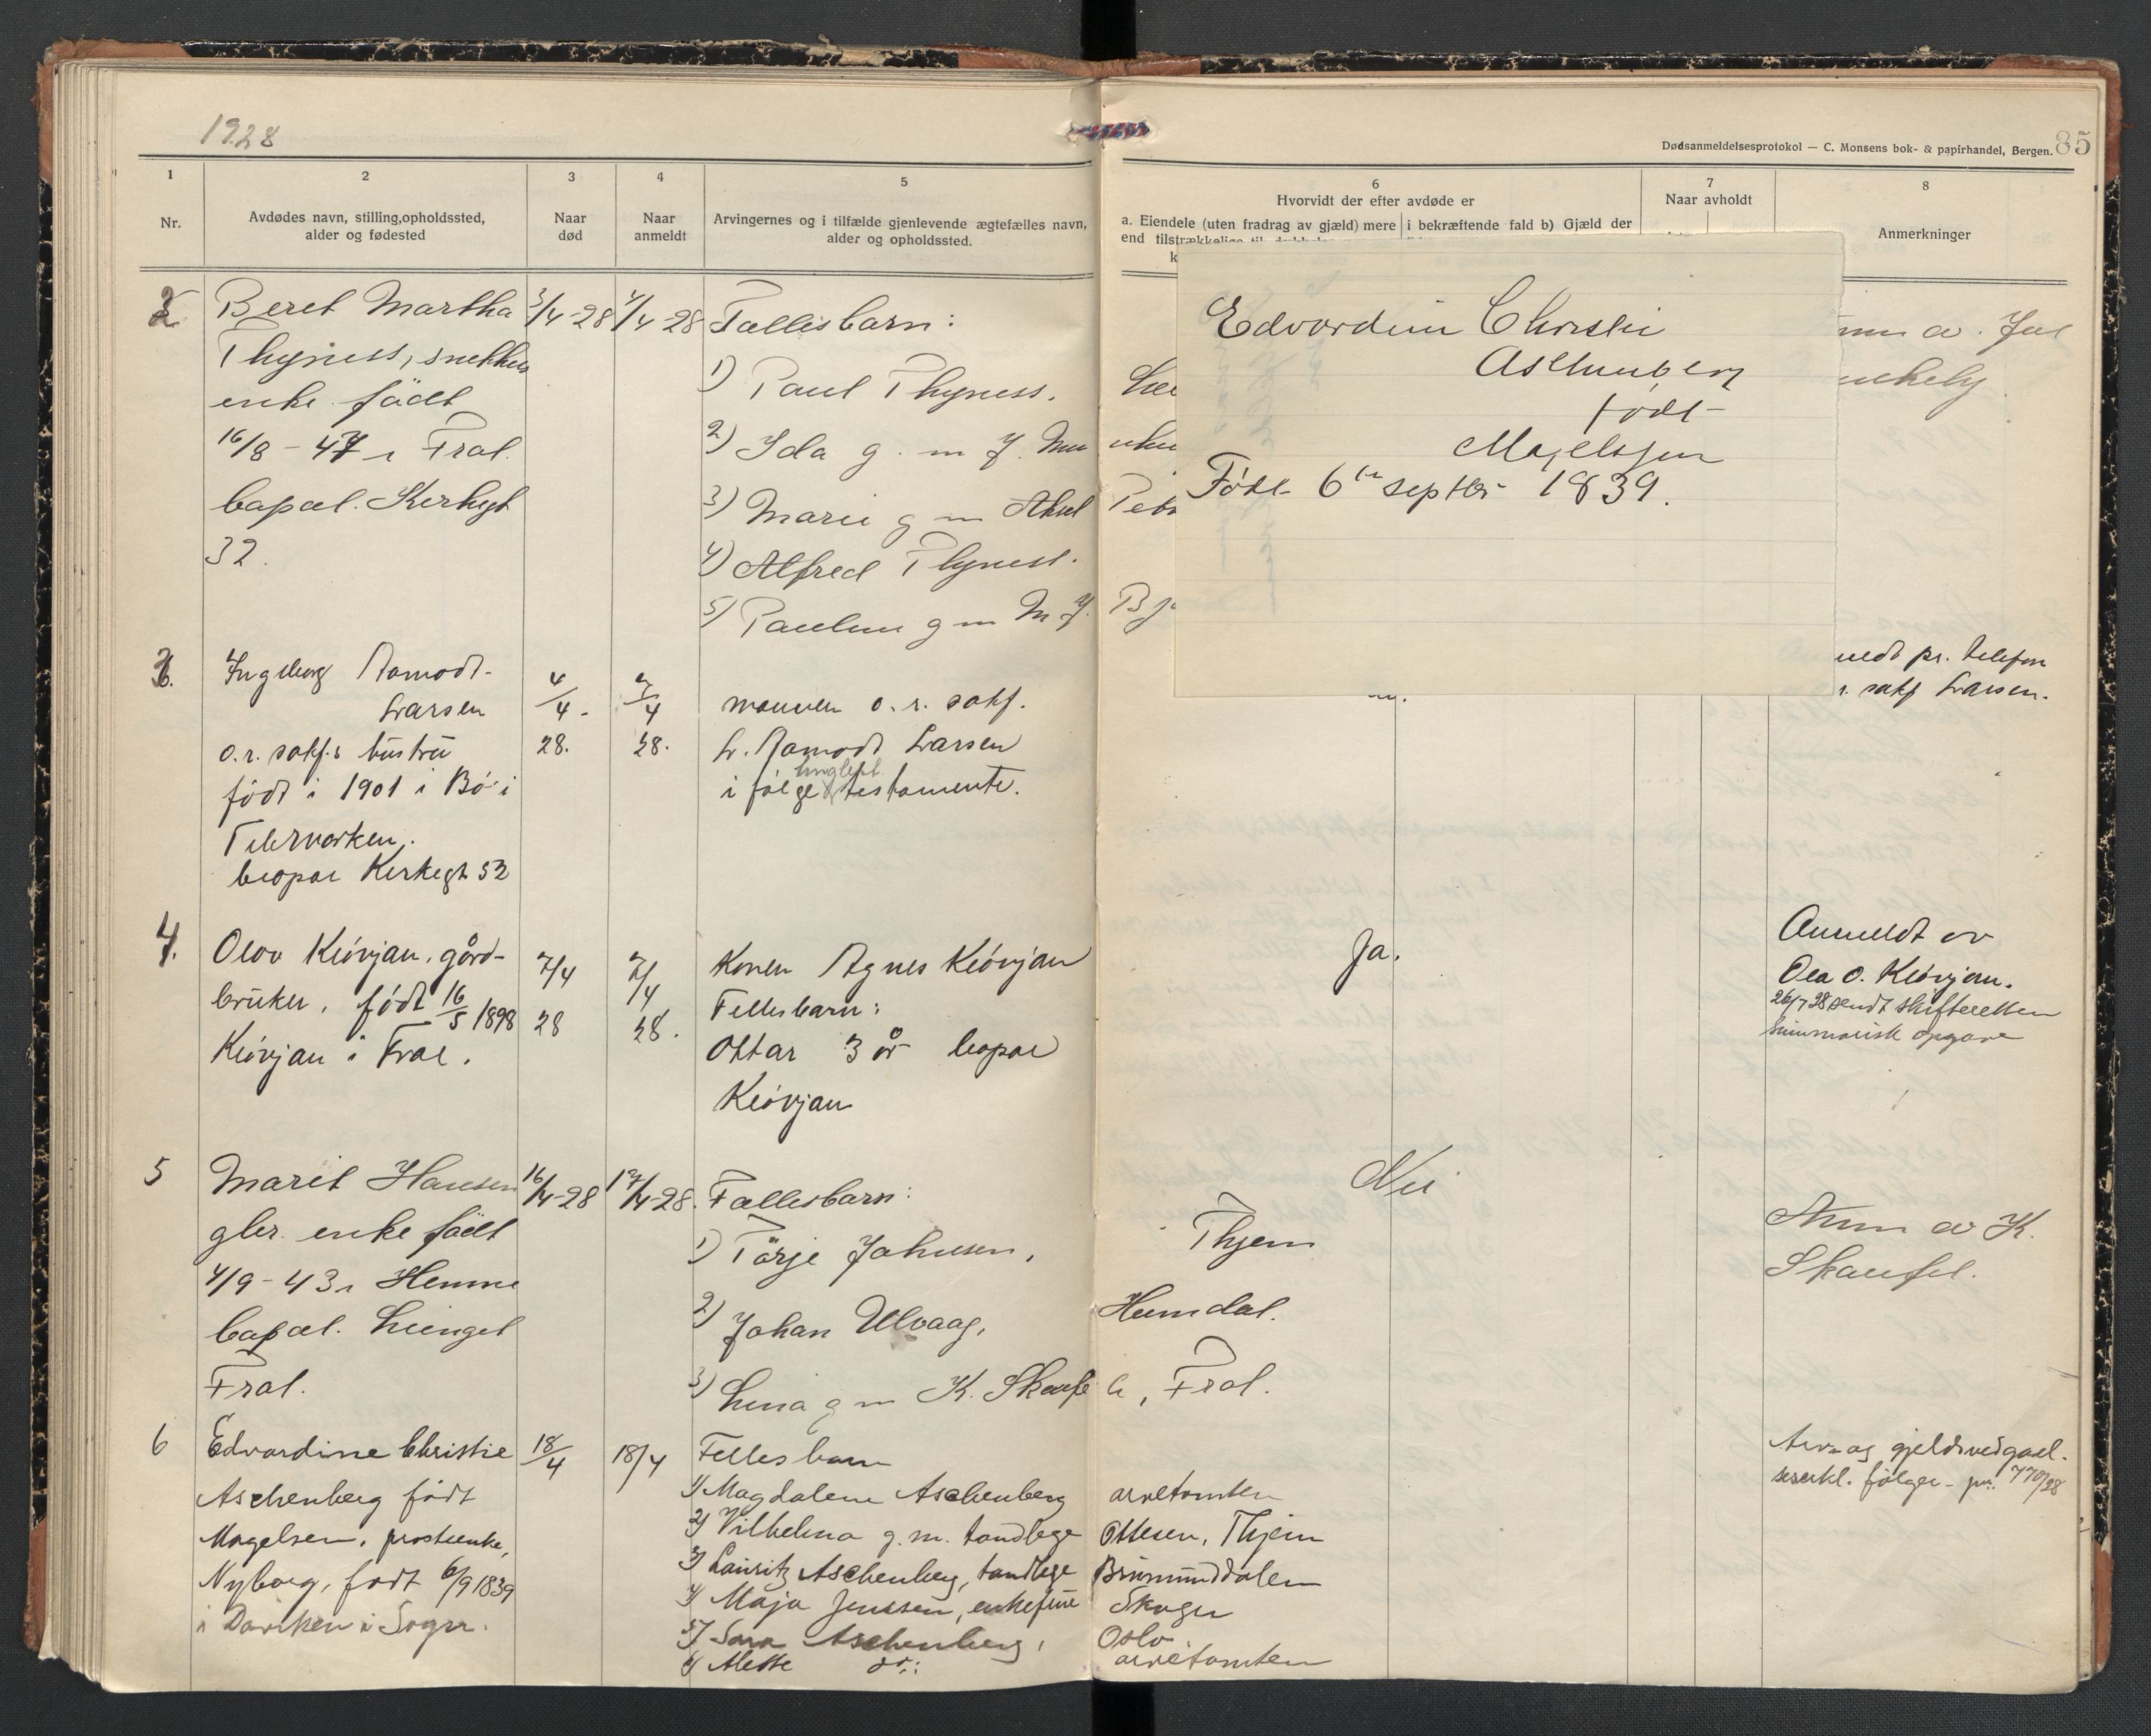 1928
85
Dødsanmeldelsesprotokol — C. Monsens bok- & papirhandel, Bergen.
1
Nr.
2
Avdødes navn, stilling, opholdssted,
alder og fødested
3
Naar
død
4
Naar
anmeldt
5
Arvingernes og i tilfælde gjenlevende ægtefælles navn,
alder og opholdssted.
6
Hvorvidt der efter avdøde er
a. Eiendele (uten fradrag av gjæld) mere
end
i bekræftende fald b) Gjæld der
7
Naar avholdt
8
Anmerkninger
Edvardine Christie
Aschenberg
født
Magelssen
Født 6te septbr 1839.
2
Beret Martha
Thyness, snekker
enke født
16/8-47 i Frol.
bopæl. Kirkegt
32.
3/4-28
4/4-28
Fællesbarn:
1) Paul Thyness.
2) Ida g. m J.
3) Marie g m Aksel
4) Alfred Thyness.
5) Pauline g m M J.
3.
Ingeborg Aamodt-
Larsen
o.r. sakf.s hustru
født i 1901 i Bø i
Telemarken.
bopæl Kirkegt 52
4/4-
28.
7/4
28.
mannen o. r. sakf.
L. Aamodt Larsen
i følge tinglest testamente.
meldt pr. telefon
sakf Larsen.
4.
Olav Kløvjan, gård-
bruker, født 16/5 1898
Kløvjan i Frol.
7/4
28
7/4
28.
Konen Agnes Kløvjan
Fellesbarn:
Ottar 3 år bopæl
Kløvjan
Ja.
Anmeldt av
Ola O. Kløvjan.
26/7 28 sendt skifteretten
summarisk opgave
5
Marit Hansen
gbr. enke født
4/9-43 i Hemne
bopæl.
Frol.
16/4-28
17/4-28.
Fællesbarn:
1) Torje Johnsen, Thjem
2) Johan Ulvaag, Hemdal.
3) Lina g m K. Skaufel, Frol.
Nei
Anm av K.
Skaufel.
6
Edvardine Christie
Aschenberg født
Magelsen, prosteenke,
Nyborg, født 6/9 1839
i i Sogn.
18/4
18/4
Fellesbarn
1) Magdalene Aschenberg arvetomten
2) Vilhelma g.m. tandlege Ottesen, Thjem
3) Lauritz Aschenberg, tandlege Brumunddalen
4) Maja Jenssen, enkefrue Skoger
5) Sara Aschenberg, Oslo
6) Mette do: arvetomten
Arv- og gjeldsvedgaael-
seserkl. følger - 770/28